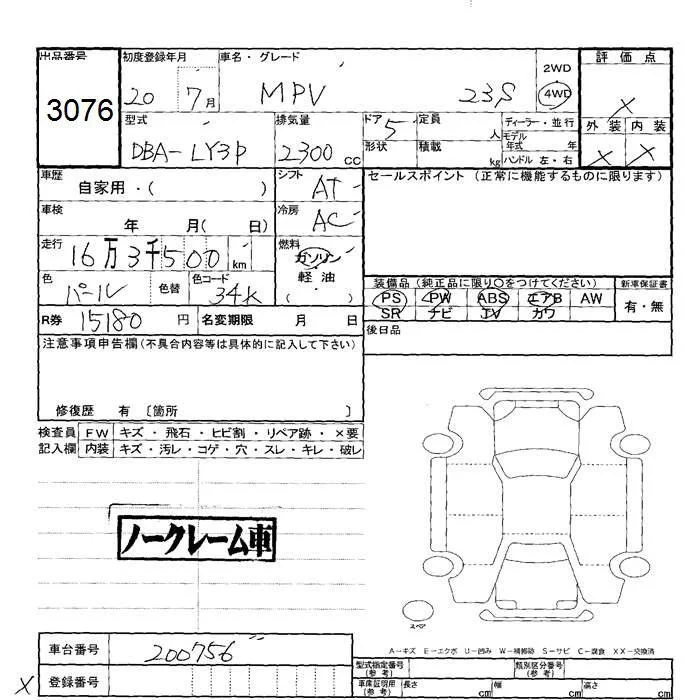 出品番号
3076
初度登録年月
20 7月
車名・グレード
MPV 23S
2WD
4WD
評価点
×
外装 内装
× ×
型式
DBA-LY3P
排気量
2300 cc
ドア
5
形状
定員
人
積載
kg
ディーラー・並行
モデル年式 年
ハンドル 左・右
車歴
自家用・( )
シフト
AT
車検
年 月( 日)
冷房
AC
走行
16万3千500 km
燃料
ガソリン
軽・油
( )
色
パール
色替
色コード
34K
R券 15180 円
名変期限 月 日
セールスポイント(正常に機能するものに限ります)
装備品(純正品に限り○をつけてください)
PS PW ABS エアB AW
SR ナビ TV カワ
新車保証書
有・無
後日品
注意事項申告欄(不具合内容等は具体的に記入して下さい)
修復歴 有 〔箇所 〕
検査員記入欄
FW キズ・飛石・ヒビ割・リペア跡・×要
内装 キズ・汚レ・コゲ・穴・スレ・キレ・破レ
ノークレーム車
スペア
A-キズ E-エクボ U-凹み W-補修跡 S-サビ C-腐食 XX-交換済
車台番号
200756
× 登録番号
型式指定番号(参考)
類別区分番号(参考)
車庫証明用(参考)
長さ cm 幅 cm 高さ cm